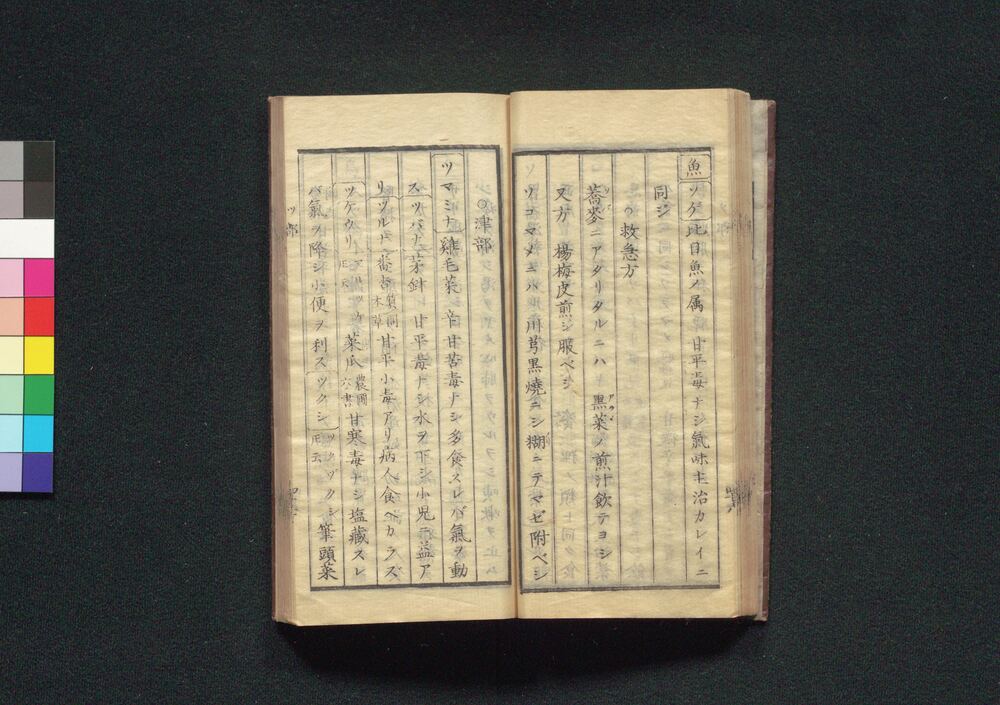 魚 ソゲ 比目魚ノ属 甘平毒ナシ氣味主治カレイニ
同ジ
救急方
蕎麥ニアタリタルニハ 黒菜ノ煎汁飲テヨシ
又方 楊梅皮煎ジ服ベシ
ソコマメニハ 川芎黒燒ニシ糊ニテマゼ附ベシ
○津部
ツマミナ 雞毛菜 辛甘苦毒ナシ多食スレバ氣ヲ動
ス ツバナ 茅針 甘平毒ナシ水ヲ下シ小児ニ益ア
リ ツルナ 番杏 甘平小毒アリ病人食ベカラズ
ツケウリ 菜瓜 農圃六書 甘寒毒ナシ塩藏スレ
バ氣ヲ降シ小便ヲ利ス ツクシ ツクヅクシ 筆頭菜
ツ部